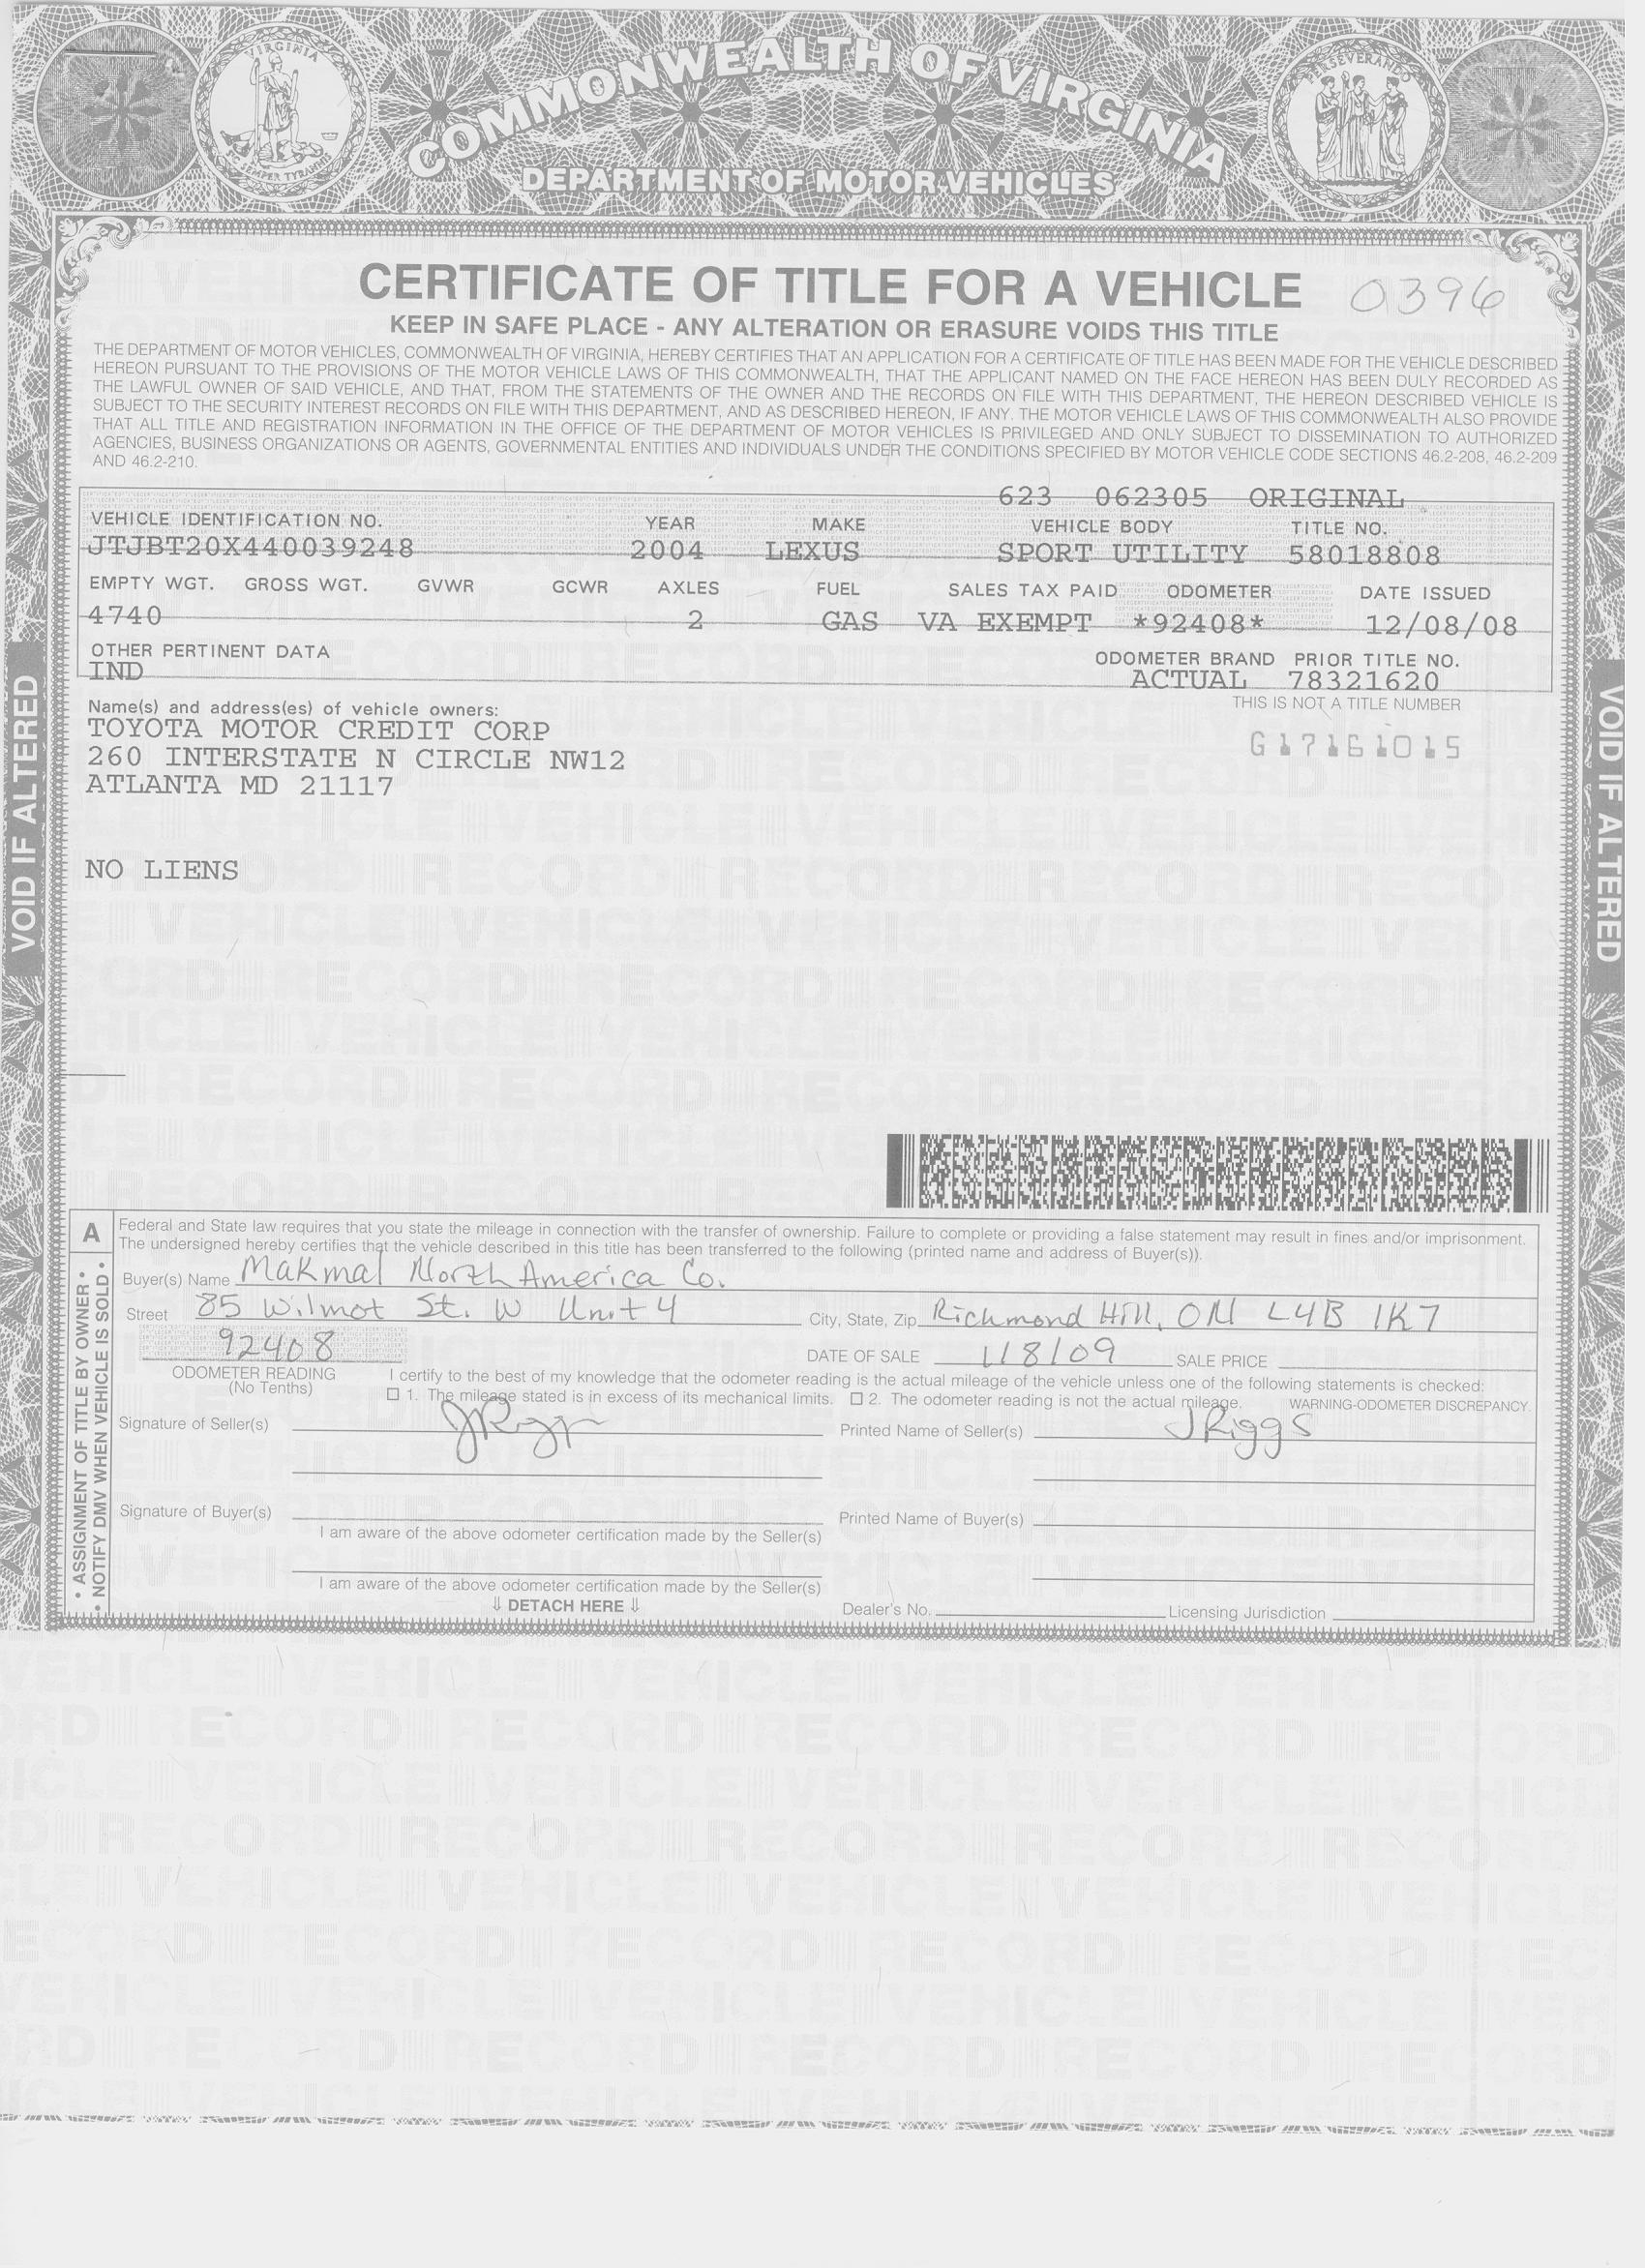 COMMONWEALTH OF VIRGINIA
VIRGINIA
SIC SEMPER TYRANNIS
PERSEVERANDO
DEPARTMENT OF MOTOR VEHICLES
CERTIFICATE OF TITLE FOR A VEHICLE 0396
KEEP IN SAFE PLACE - ANY ALTERATION OR ERASURE VOIDS THIS TITLE
THE DEPARTMENT OF MOTOR VEHICLES, COMMONWEALTH OF VIRGINIA, HEREBY CERTIFIES THAT AN APPLICATION FOR A CERTIFICATE OF TITLE HAS BEEN MADE FOR THE VEHICLE DESCRIBED
HEREON PURSUANT TO THE PROVISIONS OF THE MOTOR VEHICLE LAWS OF THIS COMMONWEALTH, THAT THE APPLICANT NAMED ON THE FACE HEREON HAS BEEN DULY RECORDED AS
THE LAWFUL OWNER OF SAID VEHICLE, AND THAT, FROM THE STATEMENTS OF THE OWNER AND THE RECORDS ON FILE WITH THIS DEPARTMENT, THE HEREON DESCRIBED VEHICLE IS
SUBJECT TO THE SECURITY INTEREST RECORDS ON FILE WITH THIS DEPARTMENT, AND AS DESCRIBED HEREON, IF ANY. THE MOTOR VEHICLE LAWS OF THIS COMMONWEALTH ALSO PROVIDE
THAT ALL TITLE AND REGISTRATION INFORMATION IN THE OFFICE OF THE DEPARTMENT OF MOTOR VEHICLES IS PRIVILEGED AND ONLY SUBJECT TO DISSEMINATION TO AUTHORIZED
AGENCIES, BUSINESS ORGANIZATIONS OR AGENTS, GOVERNMENTAL ENTITIES AND INDIVIDUALS UNDER THE CONDITIONS SPECIFIED BY MOTOR VEHICLE CODE SECTIONS 46.2-208, 46.2-209
AND 46.2-210.
623 062305 ORIGINAL
VEHICLE IDENTIFICATION NO. YEAR MAKE VEHICLE BODY TITLE NO.
JTJBT20X440039248 2004 LEXUS SPORT UTILITY 58018808
EMPTY WGT. GROSS WGT. GVWR GCWR AXLES FUEL SALES TAX PAID ODOMETER DATE ISSUED
4740 2 GAS VA EXEMPT *92408* 12/08/08
OTHER PERTINENT DATA ODOMETER BRAND PRIOR TITLE NO.
IND ACTUAL 78321620
Name(s) and address(es) of vehicle owners: THIS IS NOT A TITLE NUMBER
TOYOTA MOTOR CREDIT CORP
G17161015
260 INTERSTATE N CIRCLE NW12
ATLANTA MD 21117
NO LIENS
VOID IF ALTERED
VOID IF ALTERED
A
Federal and State law requires that you state the mileage in connection with the transfer of ownership. Failure to complete or providing a false statement may result in fines and/or imprisonment.
The undersigned hereby certifies that the vehicle described in this title has been transferred to the following (printed name and address of Buyer(s)).
• ASSIGNMENT OF TITLE BY OWNER •
• NOTIFY DMV WHEN VEHICLE IS SOLD •
Buyer(s) Name Makmal North America Co.
Street 85 Wilmot St. W Unit 4 City, State, Zip Richmond Hill, ON L4B 1K7
92408 DATE OF SALE 1/8/09 SALE PRICE
ODOMETER READING I certify to the best of my knowledge that the odometer reading is the actual mileage of the vehicle unless one of the following statements is checked:
(No Tenths) 1. The mileage stated is in excess of its mechanical limits. 2. The odometer reading is not the actual mileage. WARNING-ODOMETER DISCREPANCY.
Signature of Seller(s) JRiggs Printed Name of Seller(s) J Riggs
Signature of Buyer(s) Printed Name of Buyer(s)
I am aware of the above odometer certification made by the Seller(s)
I am aware of the above odometer certification made by the Seller(s)
⇓ DETACH HERE ⇓ Dealer's No. Licensing Jurisdiction